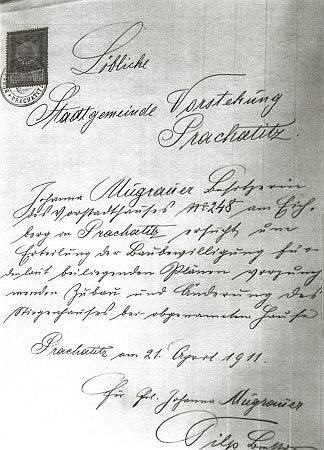 PRACHATITZ
Löbliche
Stadtgemeinde Vorstehung
Prachatitz.
Johanna Mugrauer Besitzerin
des Vorstadthauses No 248 am Eich-
berg in Prachatitz ersucht um
Erteilung der Baubewilligung für
den laut beiliegenden Plänen vorzuneh-
menden Zubau und Änderung des
Stiegenhauses bei obgenanntem Hause
Prachatitz am 21. April 1911.
Für Fr. Johanna Mugrauer